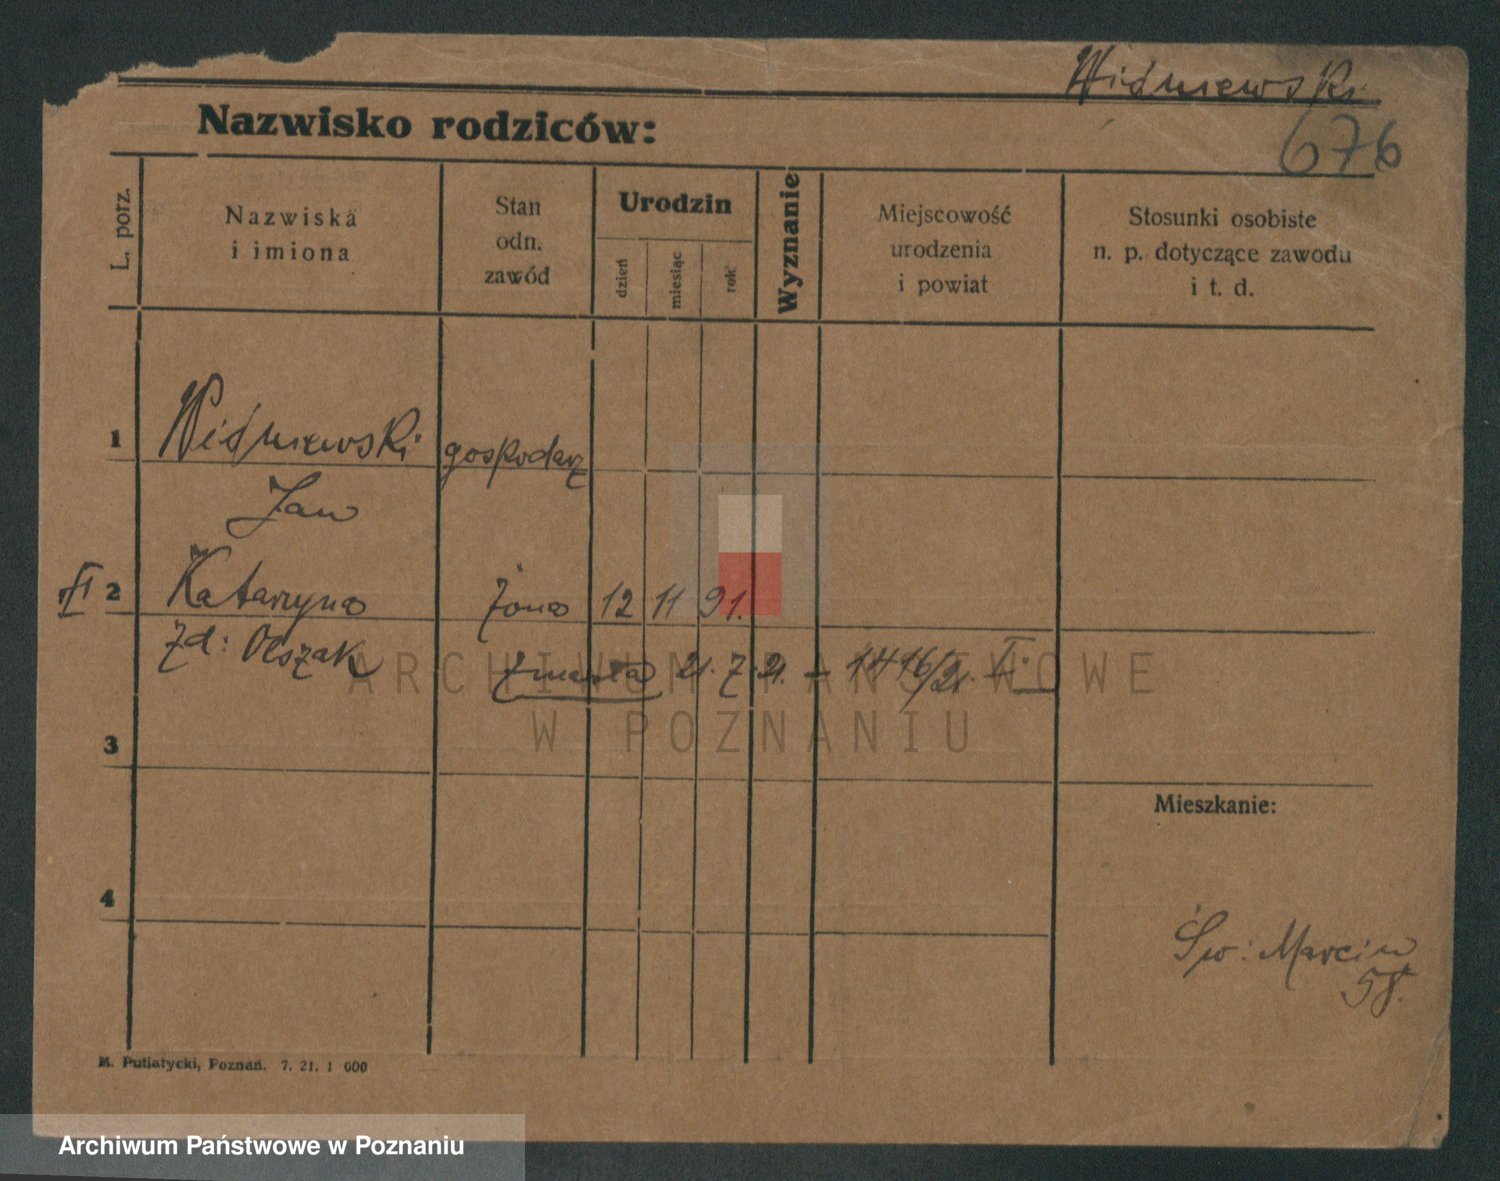 Wiśniewski
676
Nazwisko rodziców:
L. porz.
Nazwiska
i imiona
Stan
odn.
zawód
Urodzin
dzień
miesiąc
rok
Wyznanie
Miejscowość
urodzenia
i powiat
Stosunki osobiste
n. p. dotyczące zawodu
i t. d.
1 Wiśniewski gospodarz
Jan
II 2 Katarzyna żona 12 11 91.
zd: Olszak zmarła 21. 7. 21. – 1416/21. II.
ARCHIWUM PAŃSTWOWE
W POZNANIU
3
Mieszkanie:
4
Św: Marcin
58.
M. Putiatycki, Poznań. 7. 21. 1 000
Archiwum Państwowe w Poznaniu